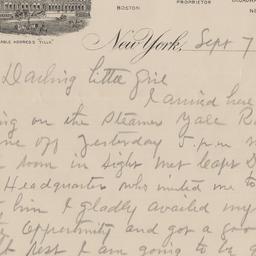 BOSTON
PROPRIETOR
BROADWA
CABLE ADDRESS "TILLY"
New York, Sept 7
Darling little girl
I arrived here
ing on the Steamer Yale
me off yesterday 5. p.m.
room in sight met Capt D
Headquarters who invited me to
him I gladly availed my
opportunity and got a goo
rest I am going to be